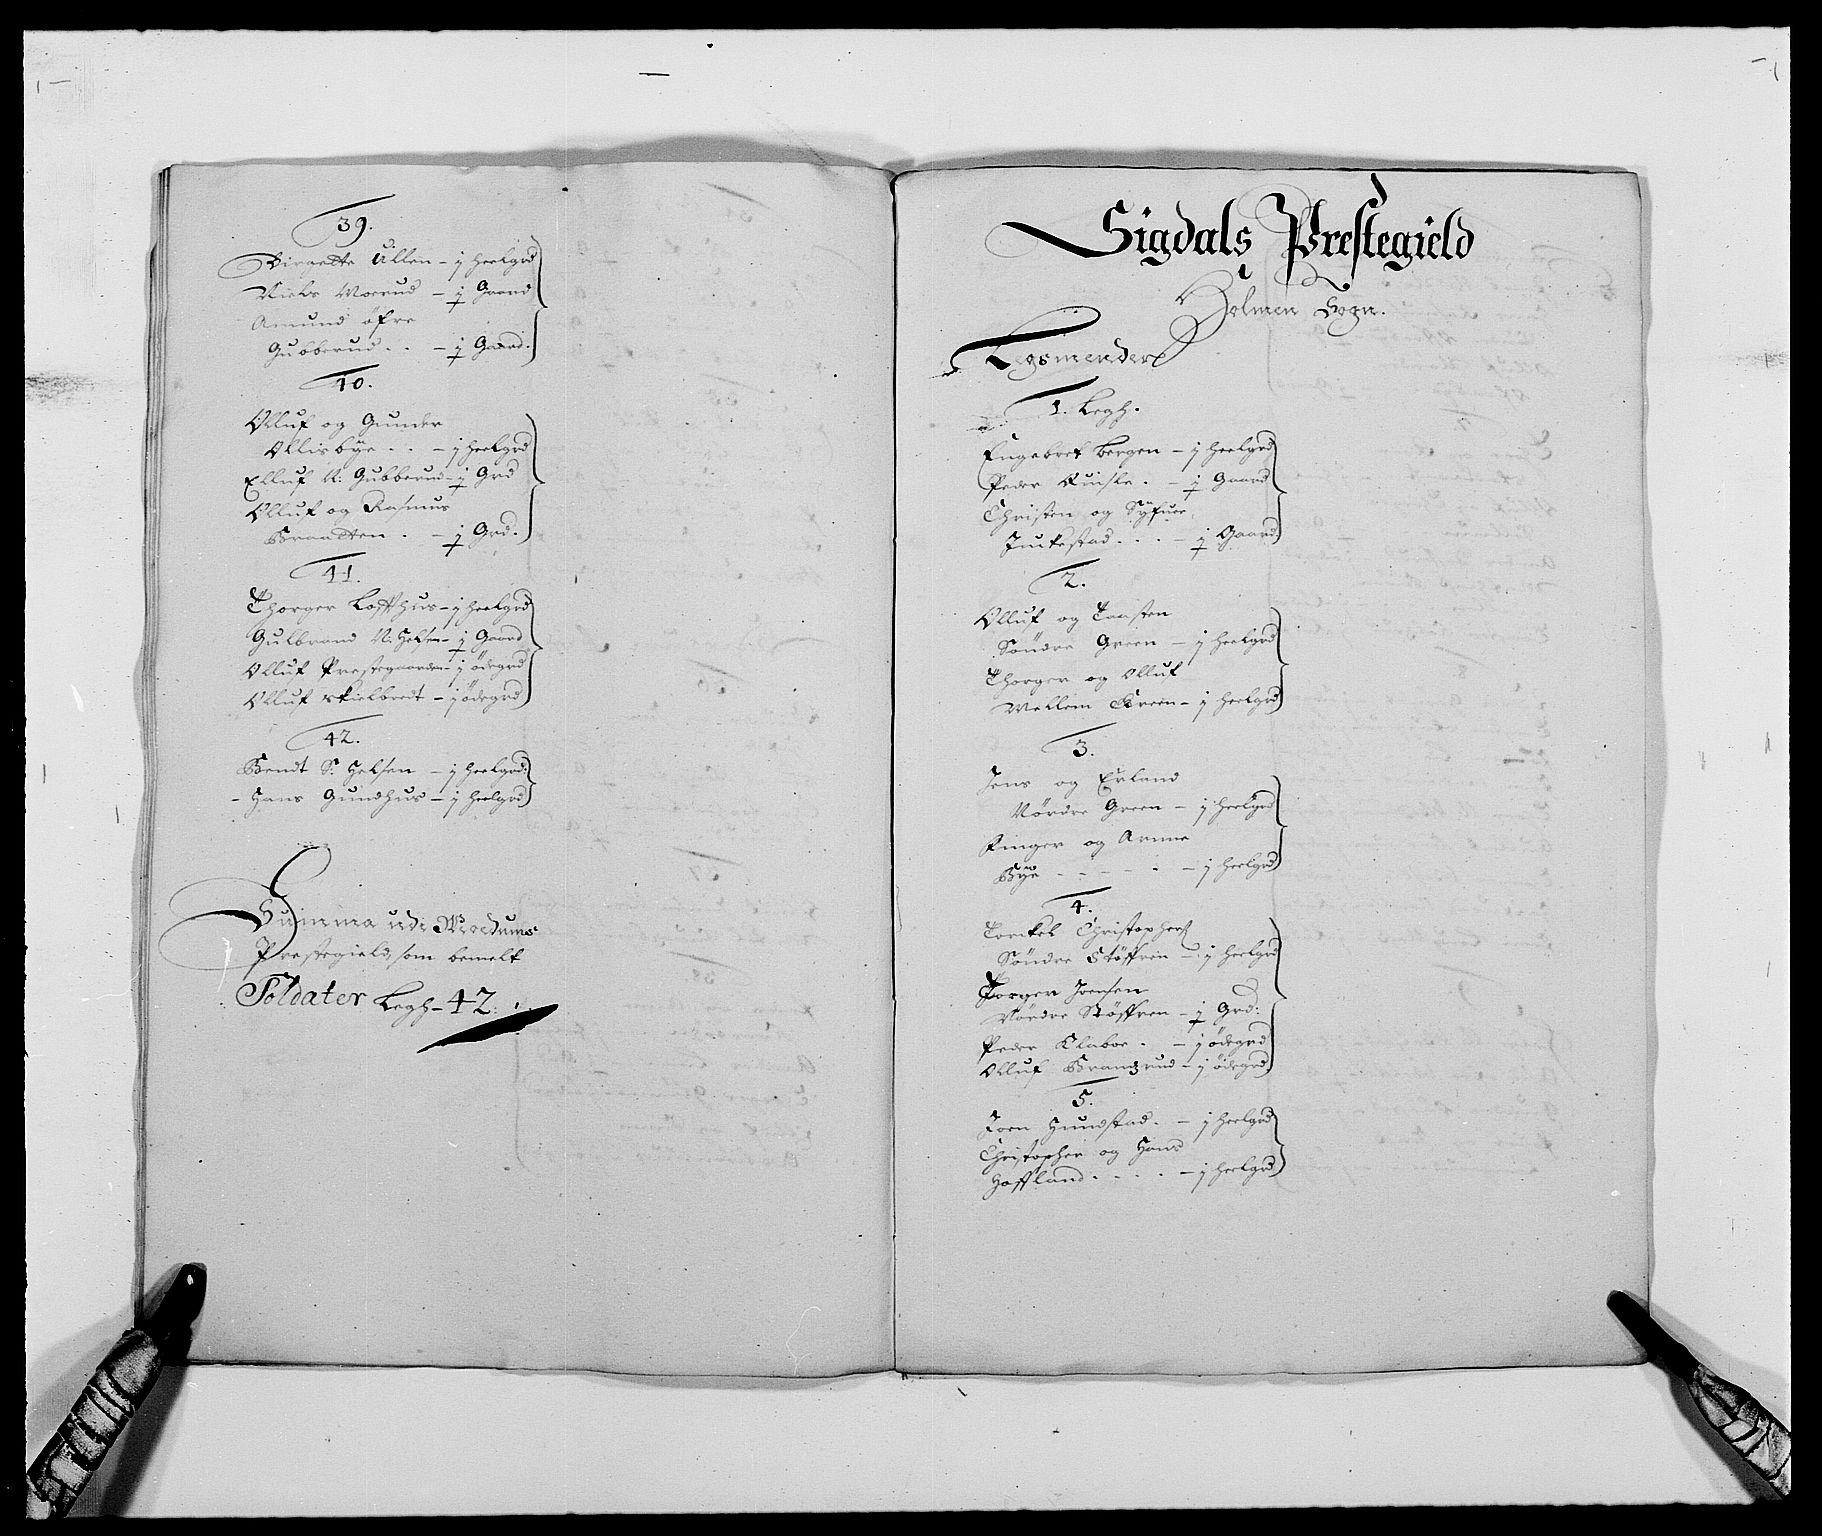 39.
Birgette Ullen - j heelgrd
Niels Moerud - ½ Gaard
Amund öfre
Gubberud . . - ½ Gaard.
40.
Olluf og Gunder
Ollisbye . . - j heelgrd
Elluf N: Gubberud - ½ Grd
Olluf og Rasmus
Braatten . - ½ Grd.
41.
Thorger Loffthus - j heelgrd
Gulbrand N: Helsen - ½ Gaard
Olluf Prestegaarden - j ödegrd
Olluf Skielbredt - j ödegrd
42.
Bendt S: Helsen - j heelgrd.
- Hans Gundhus - j heelgrd
Summa udi Modums
Prestegield, som bemelt
Soldater Legh - 42.
Sigdals Prestegield
Holmen Sogn.
Legsmender
1. Legh.
Engebret Bergen - j heelgrd
Peder Quisle . - ½ Gaard
Christen og Syfuer
Juckestad . . . - ½ Gaard
2.
Olluf og Taasten
Söndre Green - j heelgrd
Thorger og Olluf
Mellem Green - j heelgrd
3.
Jens og Erland
Nördre Green - j heelgrd
Ringer og Arnne
Bye - - - - . - j heelgrd
4.
Torckel Christophers
Söndre Stöffren - j heelgrd
Torger Joensen
Nördre Stöffren - ½ Grd:
Peder Klaboe . - j ödegrd
Olluf Brangrud - j ödegrd
5.
Joen Hundstad . - j heelgrd
Christopher og Hans
Hoffland . . . . - j heelgrd